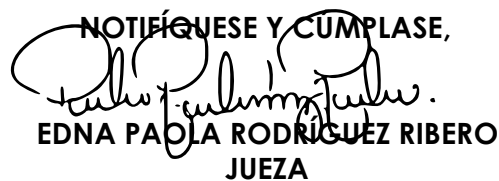 NOTIFÍQUESE Y CÚMPLASE,
EDNA PAOLA RODRÍGUEZ RIBERO
JUEZA